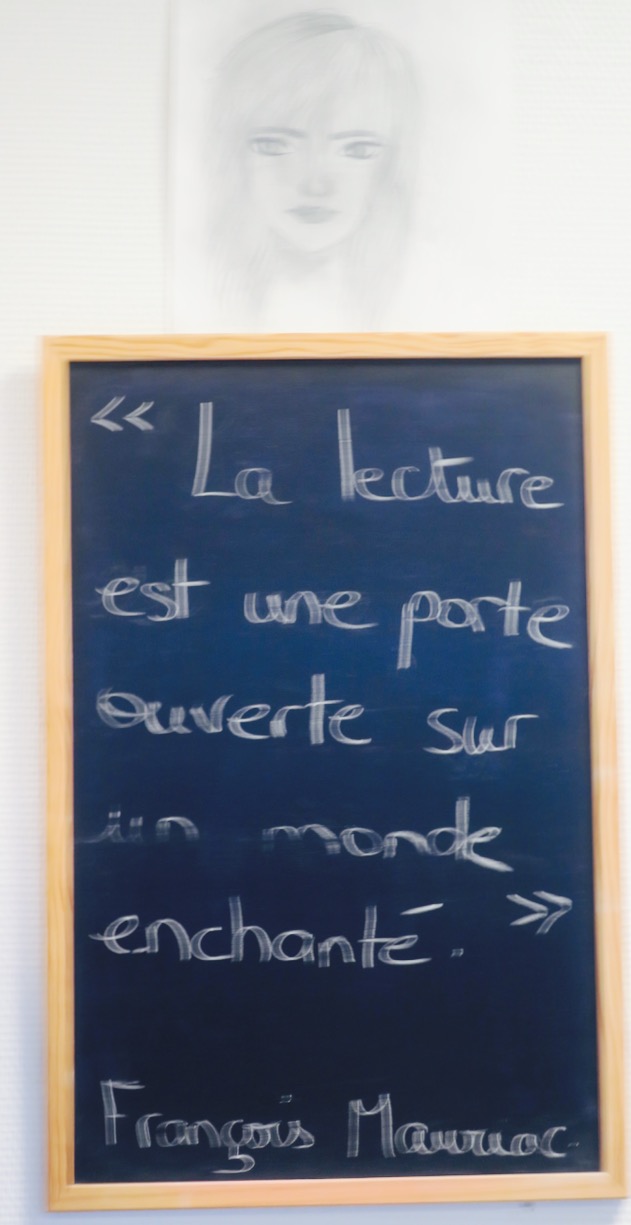 « La lecture
est une porte
ouverte sur
un monde
enchanté. »
François Mauriac